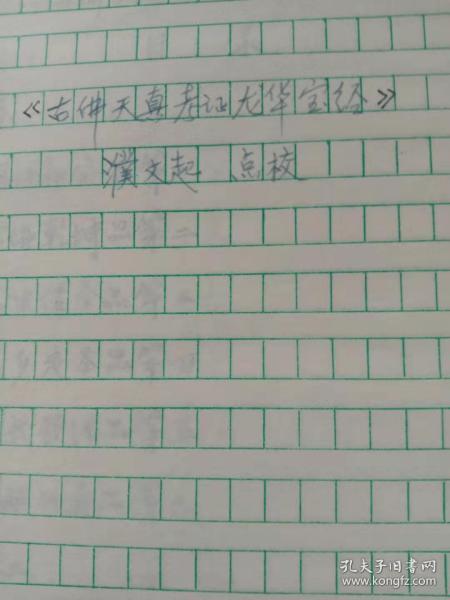 《古佛天真考证龙华宝经》
濮文起 点校
孔夫子旧书网
www.kongfz.com